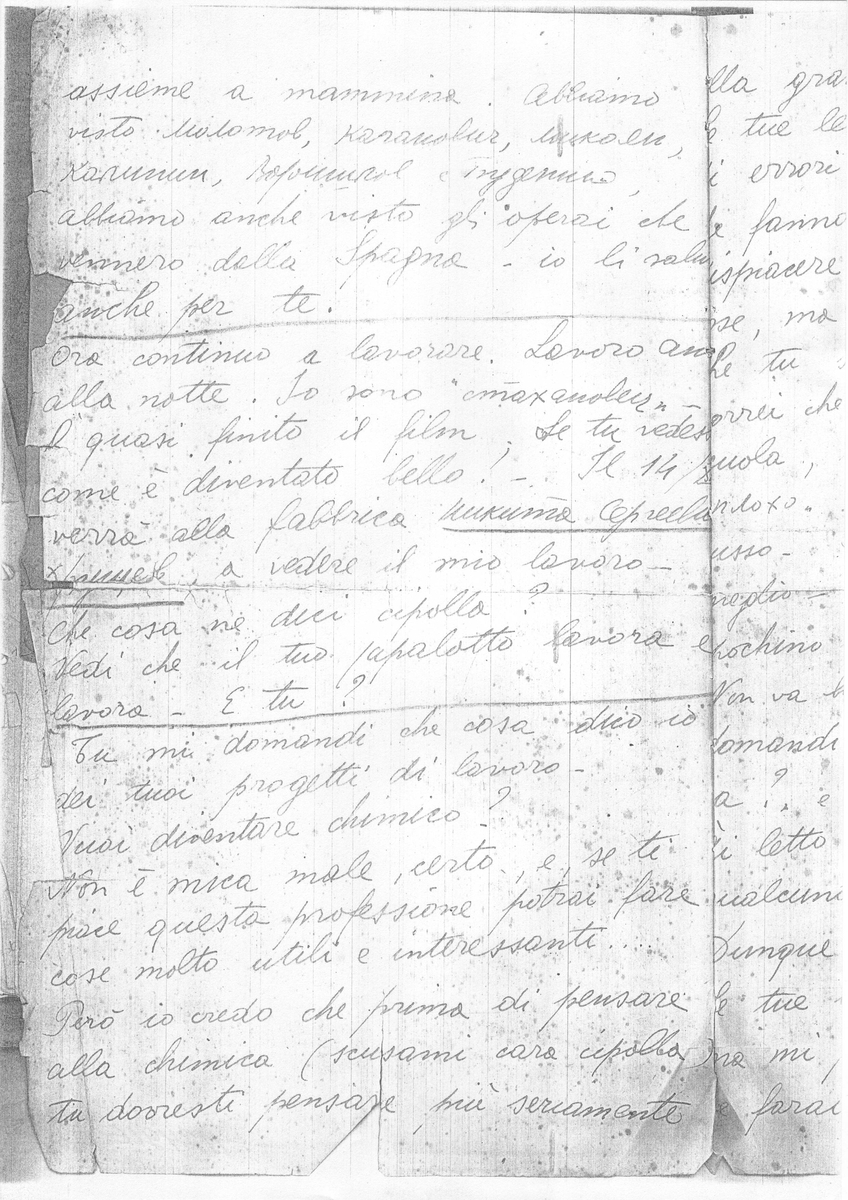 assieme a mammina. Abbiamo
visto Молотов, Каганович, Микоян,
Калинин, Ворошилов e
abbiamo anche visto gli operai che
vennero dalla Spagna - io li salu
anche per te.
Ora continuo a lavorare. Lavoro anc
alla notte. Io sono "стахановец" -
È quasi finito il film, se tu vedes
come è diventato bello! - Il 14/
verrà alla fabbrica Никита Сергее
Хрущев, a vedere il mio lavoro -
Che cosa ne dici cipolla?
Vedi che il tuo papalotto lavora e
lavora - E tu?
Tu mi domandi che cosa dico io
dei tuoi progetti di lavoro -
Vuoi diventare chimico?
Non è mica male, certo, e, se ti
piace questa professione potrai fare
cose molto utili e interessanti....
Però io credo che prima di pensare
alla chimica (scusami cara cipolla)
tu dovresti pensare più seriamente
lla gra
tue le
i errori
fanno
ispiacere
se, ma
he tu
orrei che
uola,
плохо"
usso -
meglio -
pochino
Non va b
domandi
a ?, e
i letto
ualcun
Dunque
le tue
ma mi
e farai